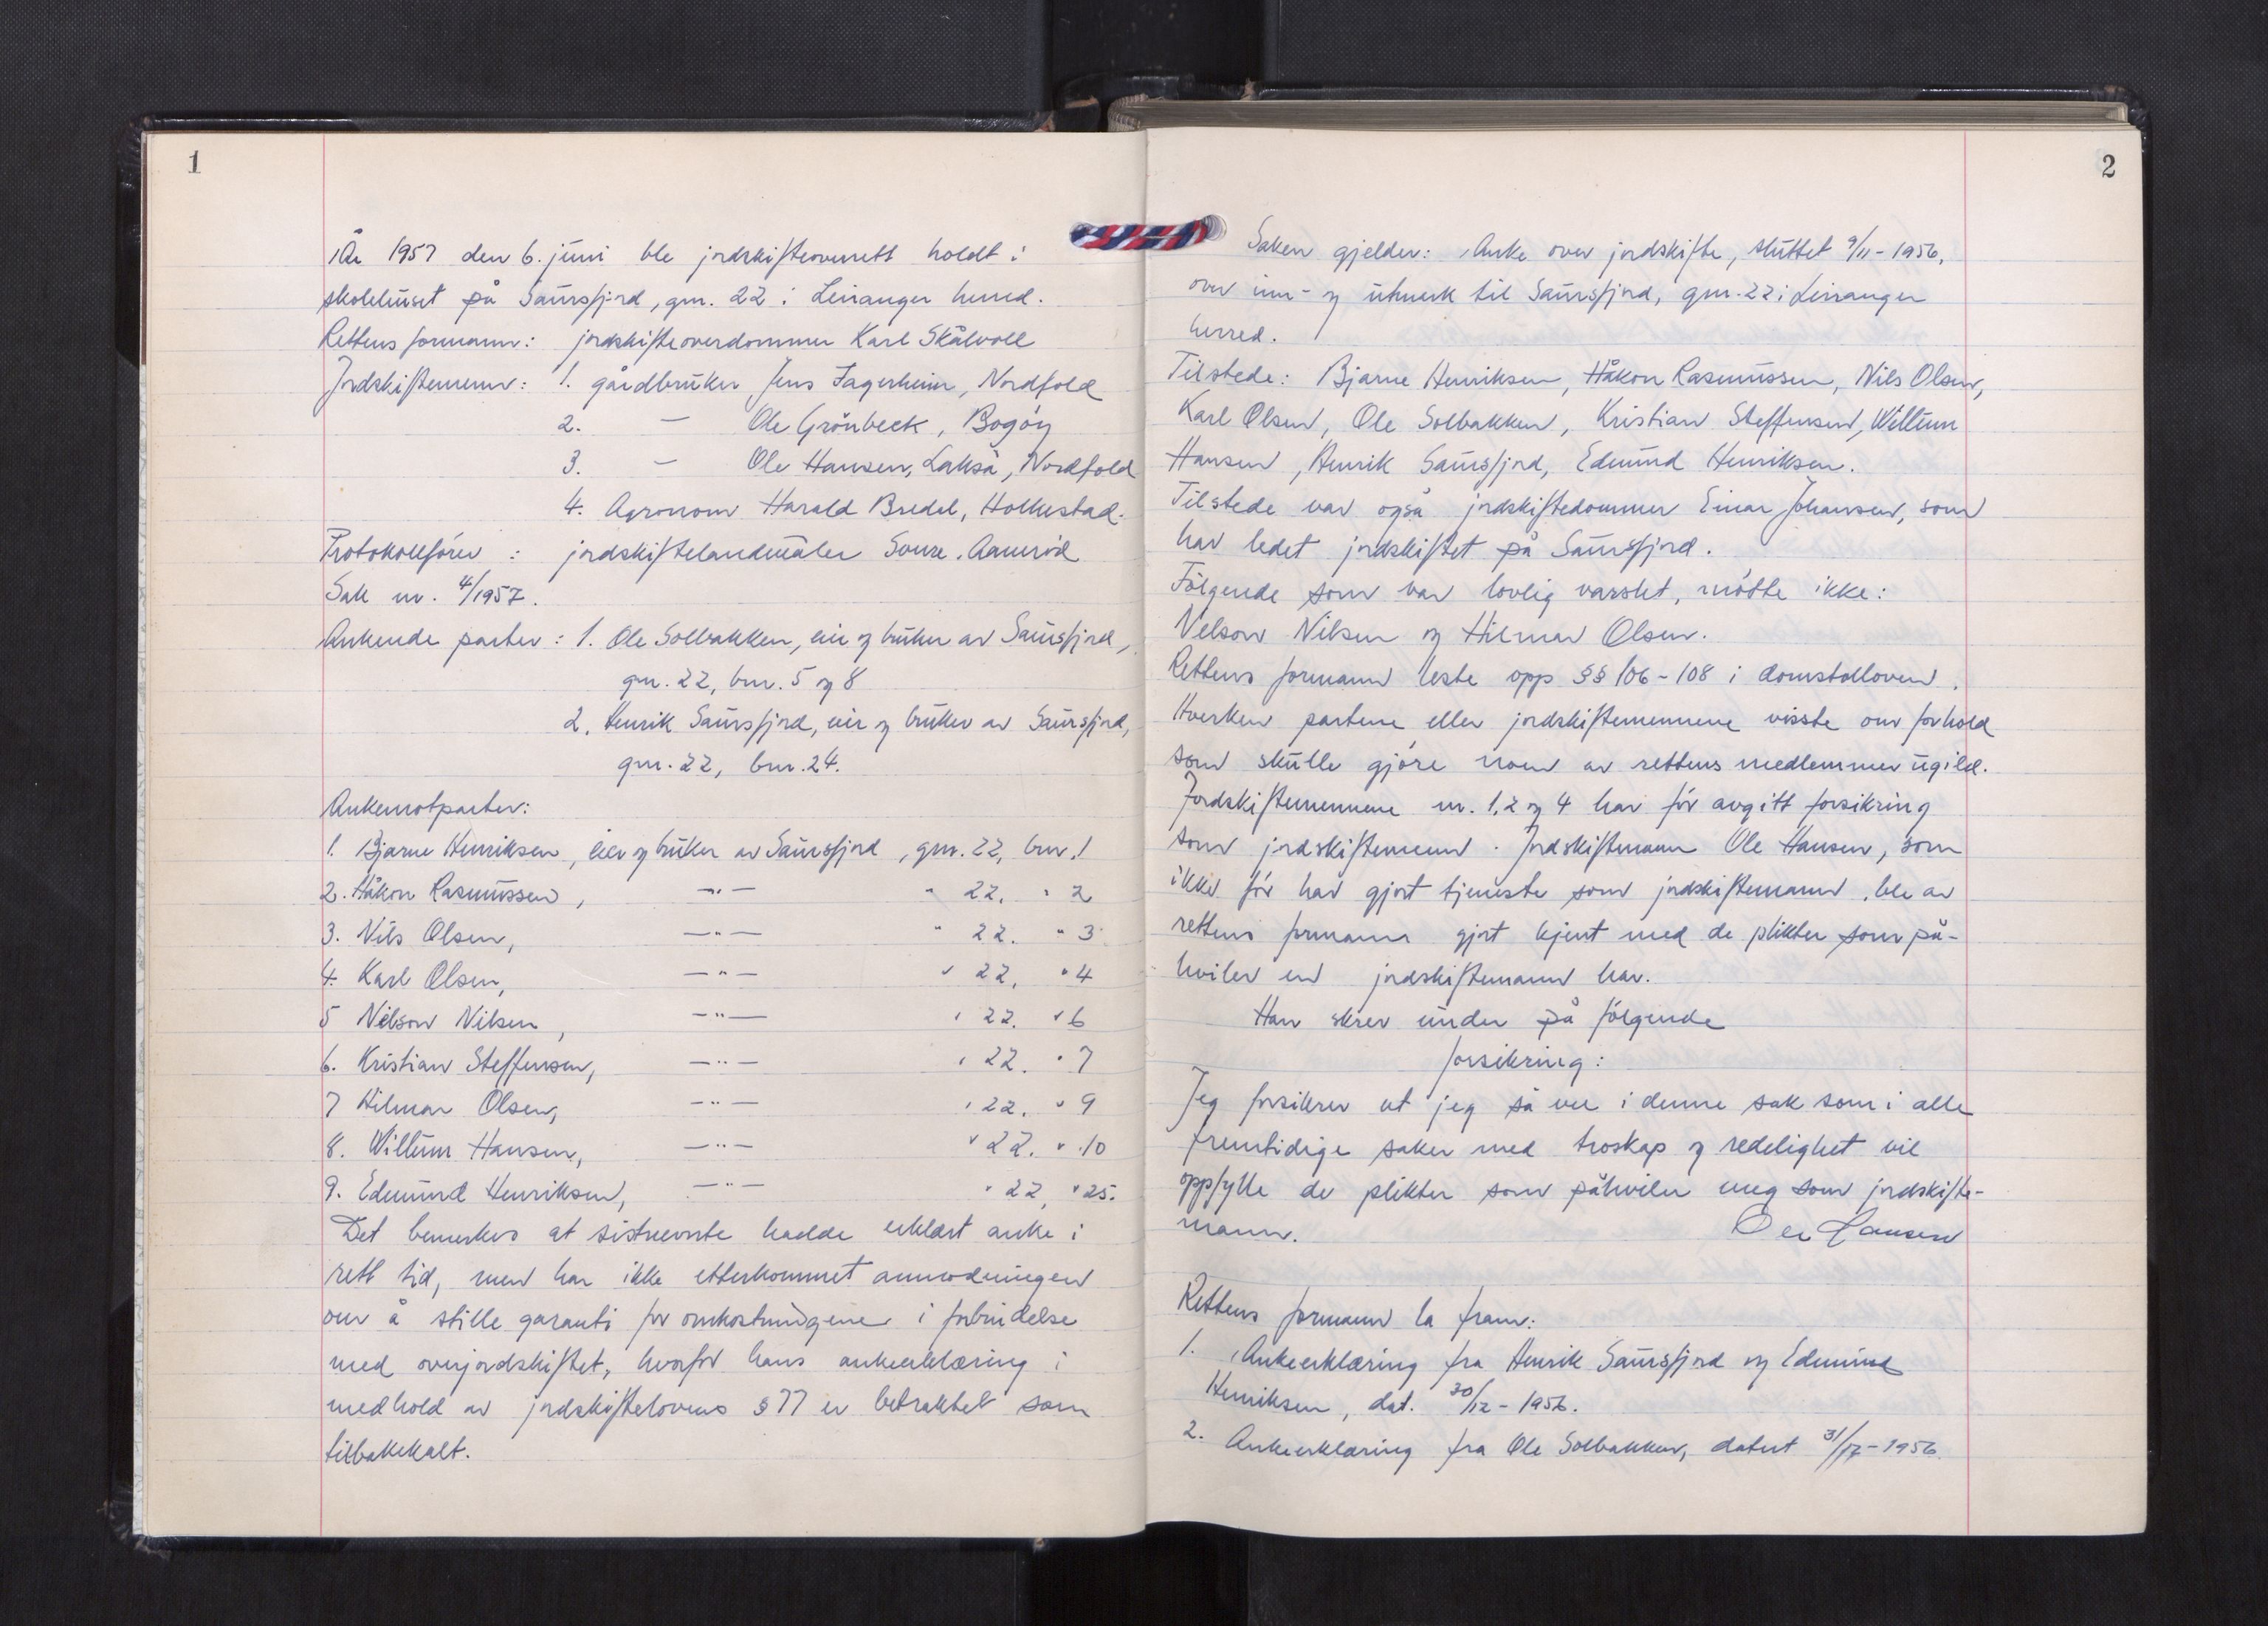 1
År 1957 den 6. juni ble jordskifteoverrett holdt i
skolehuset på Saursfjord, gnr. 22 i Leiranger herred.
Rettens formann: jordskifteoverdommer Karl Skålvoll
Jordskiftemenn: 1. gårdbruker Jens Fagerheim, Nordfold
2. — Ole Grönbeck, Bogöy
3. — Ole Hansen, Lakså, Nordfold
4. Agronom Harald Bredel, Holkestad.
Protokollförer : jordskiftelandmåler Aamröd
Sak nr. 4/1957.
Ankende parter: 1. Ole Solbakken, eier og bruker av Saursfjord,
gnr. 22, bnr. 5 og 8
2. Henrik Saursfjord, eier og bruker av Saursfjord,
gnr. 22, bnr. 24.
Ankemotparter:
1. Bjarne Henriksen, eier og bruker av Saursfjord, gnr. 22, bnr. 1
2. Håkon Rasmussen, —"— " 22. " 2
3. Nils Olsen, —"— " 22. " 3
4. Karl Olsen, —"— " 22. " 4
5 Nelson Nilsen, —"— " 22. " 6
6. Kristian Steffensen, —"— " 22. " 7
7 Hilmar Olsen, —"— " 22. " 9
8. Willum Hansen, —"— " 22. " 10
9. Edmund Henriksen, —"— " 22, " 25.
Det bemerkes at sistnevnte hadde erklært anke i
rett tid, men har ikke etterkommet anmodningen
om å stille garanti for omkostningene i forbindelse
med overjordskiftet, hvorfor hans ankeerklæring i
medhold av jordskiftelovens § 77 er betraktet som
tilbakekalt.
2
Saken gjelder: Anke over jordskifte, sluttet 9/11-1956,
over inn- og utmark til Saursfjord, gnr. 22 i Leiranger
herred.
Tilstede: Bjarne Henriksen, Håkon Rasmussen, Nils Olsen,
Karl Olsen, Ole Solbakken, Kristian Steffensen, Willum
Hansen, Henrik Saursfjord, Edmund Henriksen.
Tilstede var også jordskiftedommer Einar Johansen, som
har ledet jordskiftet på Saursfjord.
Fölgende som var lovlig varslet, mötte ikke:
Nelson Nilsen og Hilmar Olsen.
Rettens formann leste opp §§ 106-108 i domstolloven.
Hverken partene eller jordskiftemennene visste om forhold
som skulle gjöre noen av rettens medlemmer ugild.
Jordskiftemennene nr. 1, 2 og 4 har för avgitt forsikring
som jordskiftemenn. Jordskiftemann Ole Hansen, som
ikke för har gjort tjeneste som jordskiftemann, ble av
rettens formann gjort kjent med de plikter som på-
hviler en jordskiftemann har.
Han skrev under på fölgende
forsikring:
Jeg forsikrer at jeg så vel i denne sak som i alle
fremtidige saker med troskap og redelighet vil
oppfylle de plikter som påhviler meg som jordskifte-
mann. Ole Hansen
Rettens formann la fram:
1. Ankeerklæring fra Henrik Saursfjord og Edmund
Henriksen, dat. 30/12-1956.
2. Ankeerklæring fra Ole Solbakken, datert 31/12-1956.